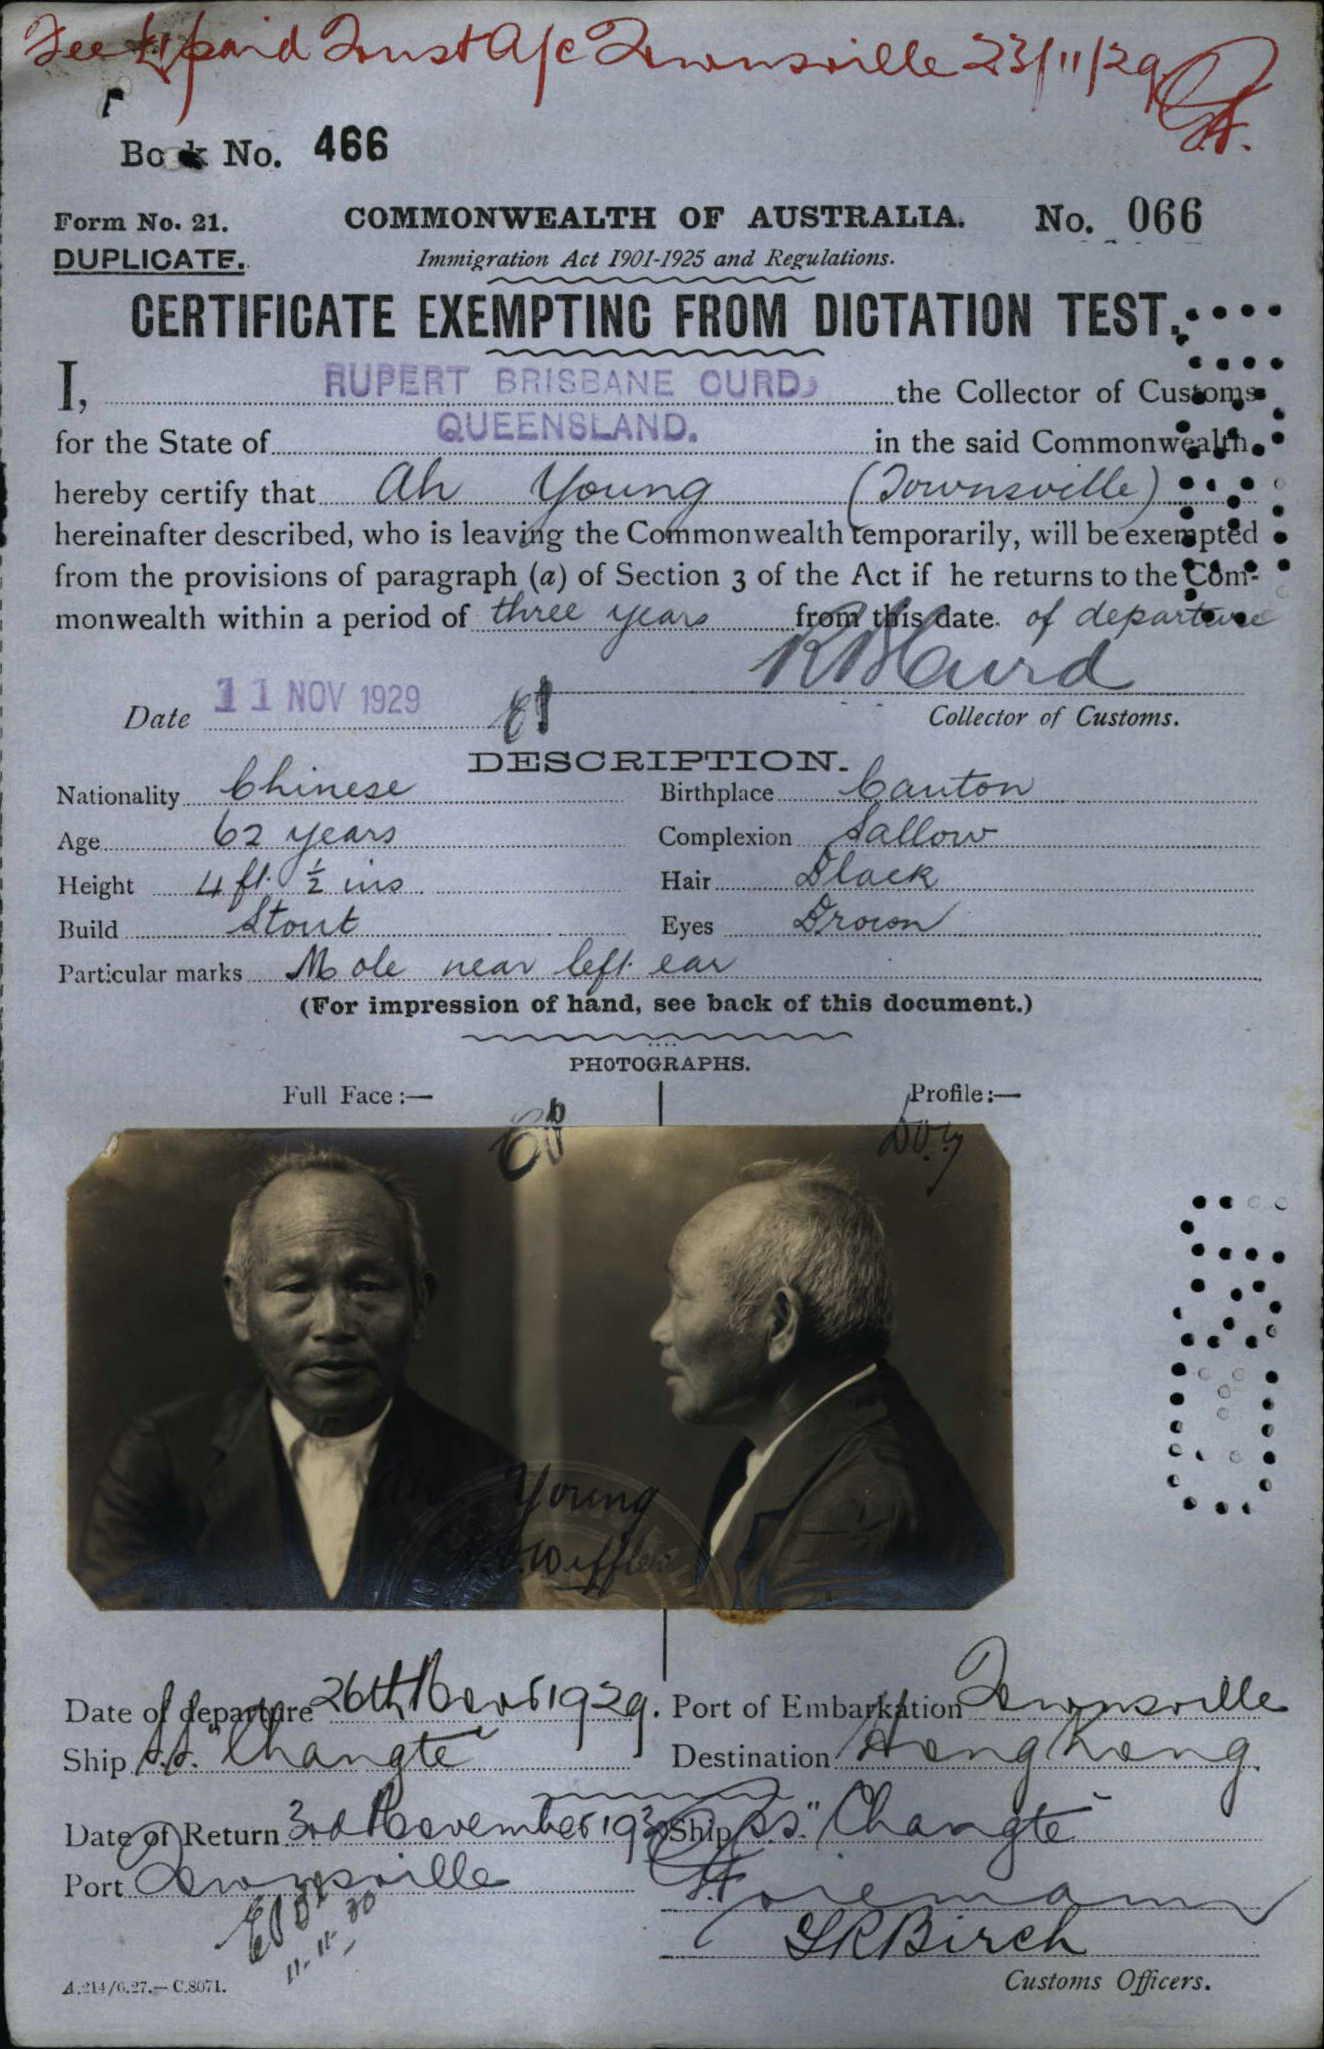 Fee £1 paid Trust A/c Townsville 23/11/29
Book No. 466
Form No. 21. COMMONWEALTH OF AUSTRALIA. No. 066
DUPLICATE. Immigration Act 1901-1925 and Regulations.
CERTIFICATE EXEMPTING FROM DICTATION TEST.
I, RUPERT BRISBANE CURD, the Collector of Customs
for the State of QUEENSLAND. in the said Commonwealth,
hereby certify that Ah Young (Townsville)
hereinafter described, who is leaving the Commonwealth temporarily, will be exempted
from the provisions of paragraph (a) of Section 3 of the Act if he returns to the Com-
monwealth within a period of three years from this date. of departure
R B Curd
Date 11 NOV 1929 Collector of Customs.
DESCRIPTION.
Nationality Chinese Birthplace Canton
Age 62 years Complexion Sallow
Height 4 ft. ½ ins Hair Black
Build Stout Eyes Brown
Particular marks Mole near left ear
(For impression of hand, see back of this document.)
PHOTOGRAPHS.
Full Face :— Profile :—
Ah Young
Date of departure 26th Novr 1929. Port of Embarkation Townsville
Ship S.S. "Changte" Destination Hong Kong
Date of Return 3rd November 1930 Ship S.S. "Changte"
Port Townsville
11.11.30
G R Birch
A.214/6.27.—C.8071. Customs Officers.